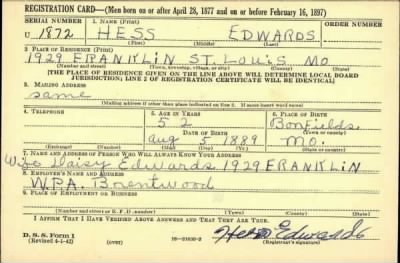 REGISTRATION CARD—(Men born on or after April 28, 1877 and on or before February 16, 1897)
SERIAL NUMBER 1. NAME (Print)
U 1872 HESS EDWARDS
(First) (Middle) (Last)
2. PLACE OF RESIDENCE (Print)
1929 FRANKLIN ST. LOUIS MO
(Number and street) (Town, township, village, or city) (County) (State)
[THE PLACE OF RESIDENCE GIVEN ON THE LINE ABOVE WILL DETERMINE LOCAL BOARD
JURISDICTION; LINE 2 OF REGISTRATION CERTIFICATE WILL BE IDENTICAL]
3. MAILING ADDRESS
same
[Mailing address if other than place indicated on line 2. If same insert word same]
4. TELEPHONE 5. AGE IN YEARS 6. PLACE OF BIRTH
52 Bonfields
DATE OF BIRTH (Town or county)
Aug 5 1889 mo.
(Exchange) (Number) (Mo.) (Day) (Yr.) (State or country)
7. NAME AND ADDRESS OF PERSON WHO WILL ALWAYS KNOW YOUR ADDRESS
Wife Daisy Edwards 1929 FRANKLIN
8. EMPLOYER'S NAME AND ADDRESS
W.P.A. Brentwood
9. PLACE OF EMPLOYMENT OR BUSINESS
(Number and street or R. F. D. number) (Town) (County) (State)
I AFFIRM THAT I HAVE VERIFIED ABOVE ANSWERS AND THAT THEY ARE TRUE.
D. S. S. Form 1
(Revised 4-1-42) (over) Hess Edwards
(Registrant's signature)